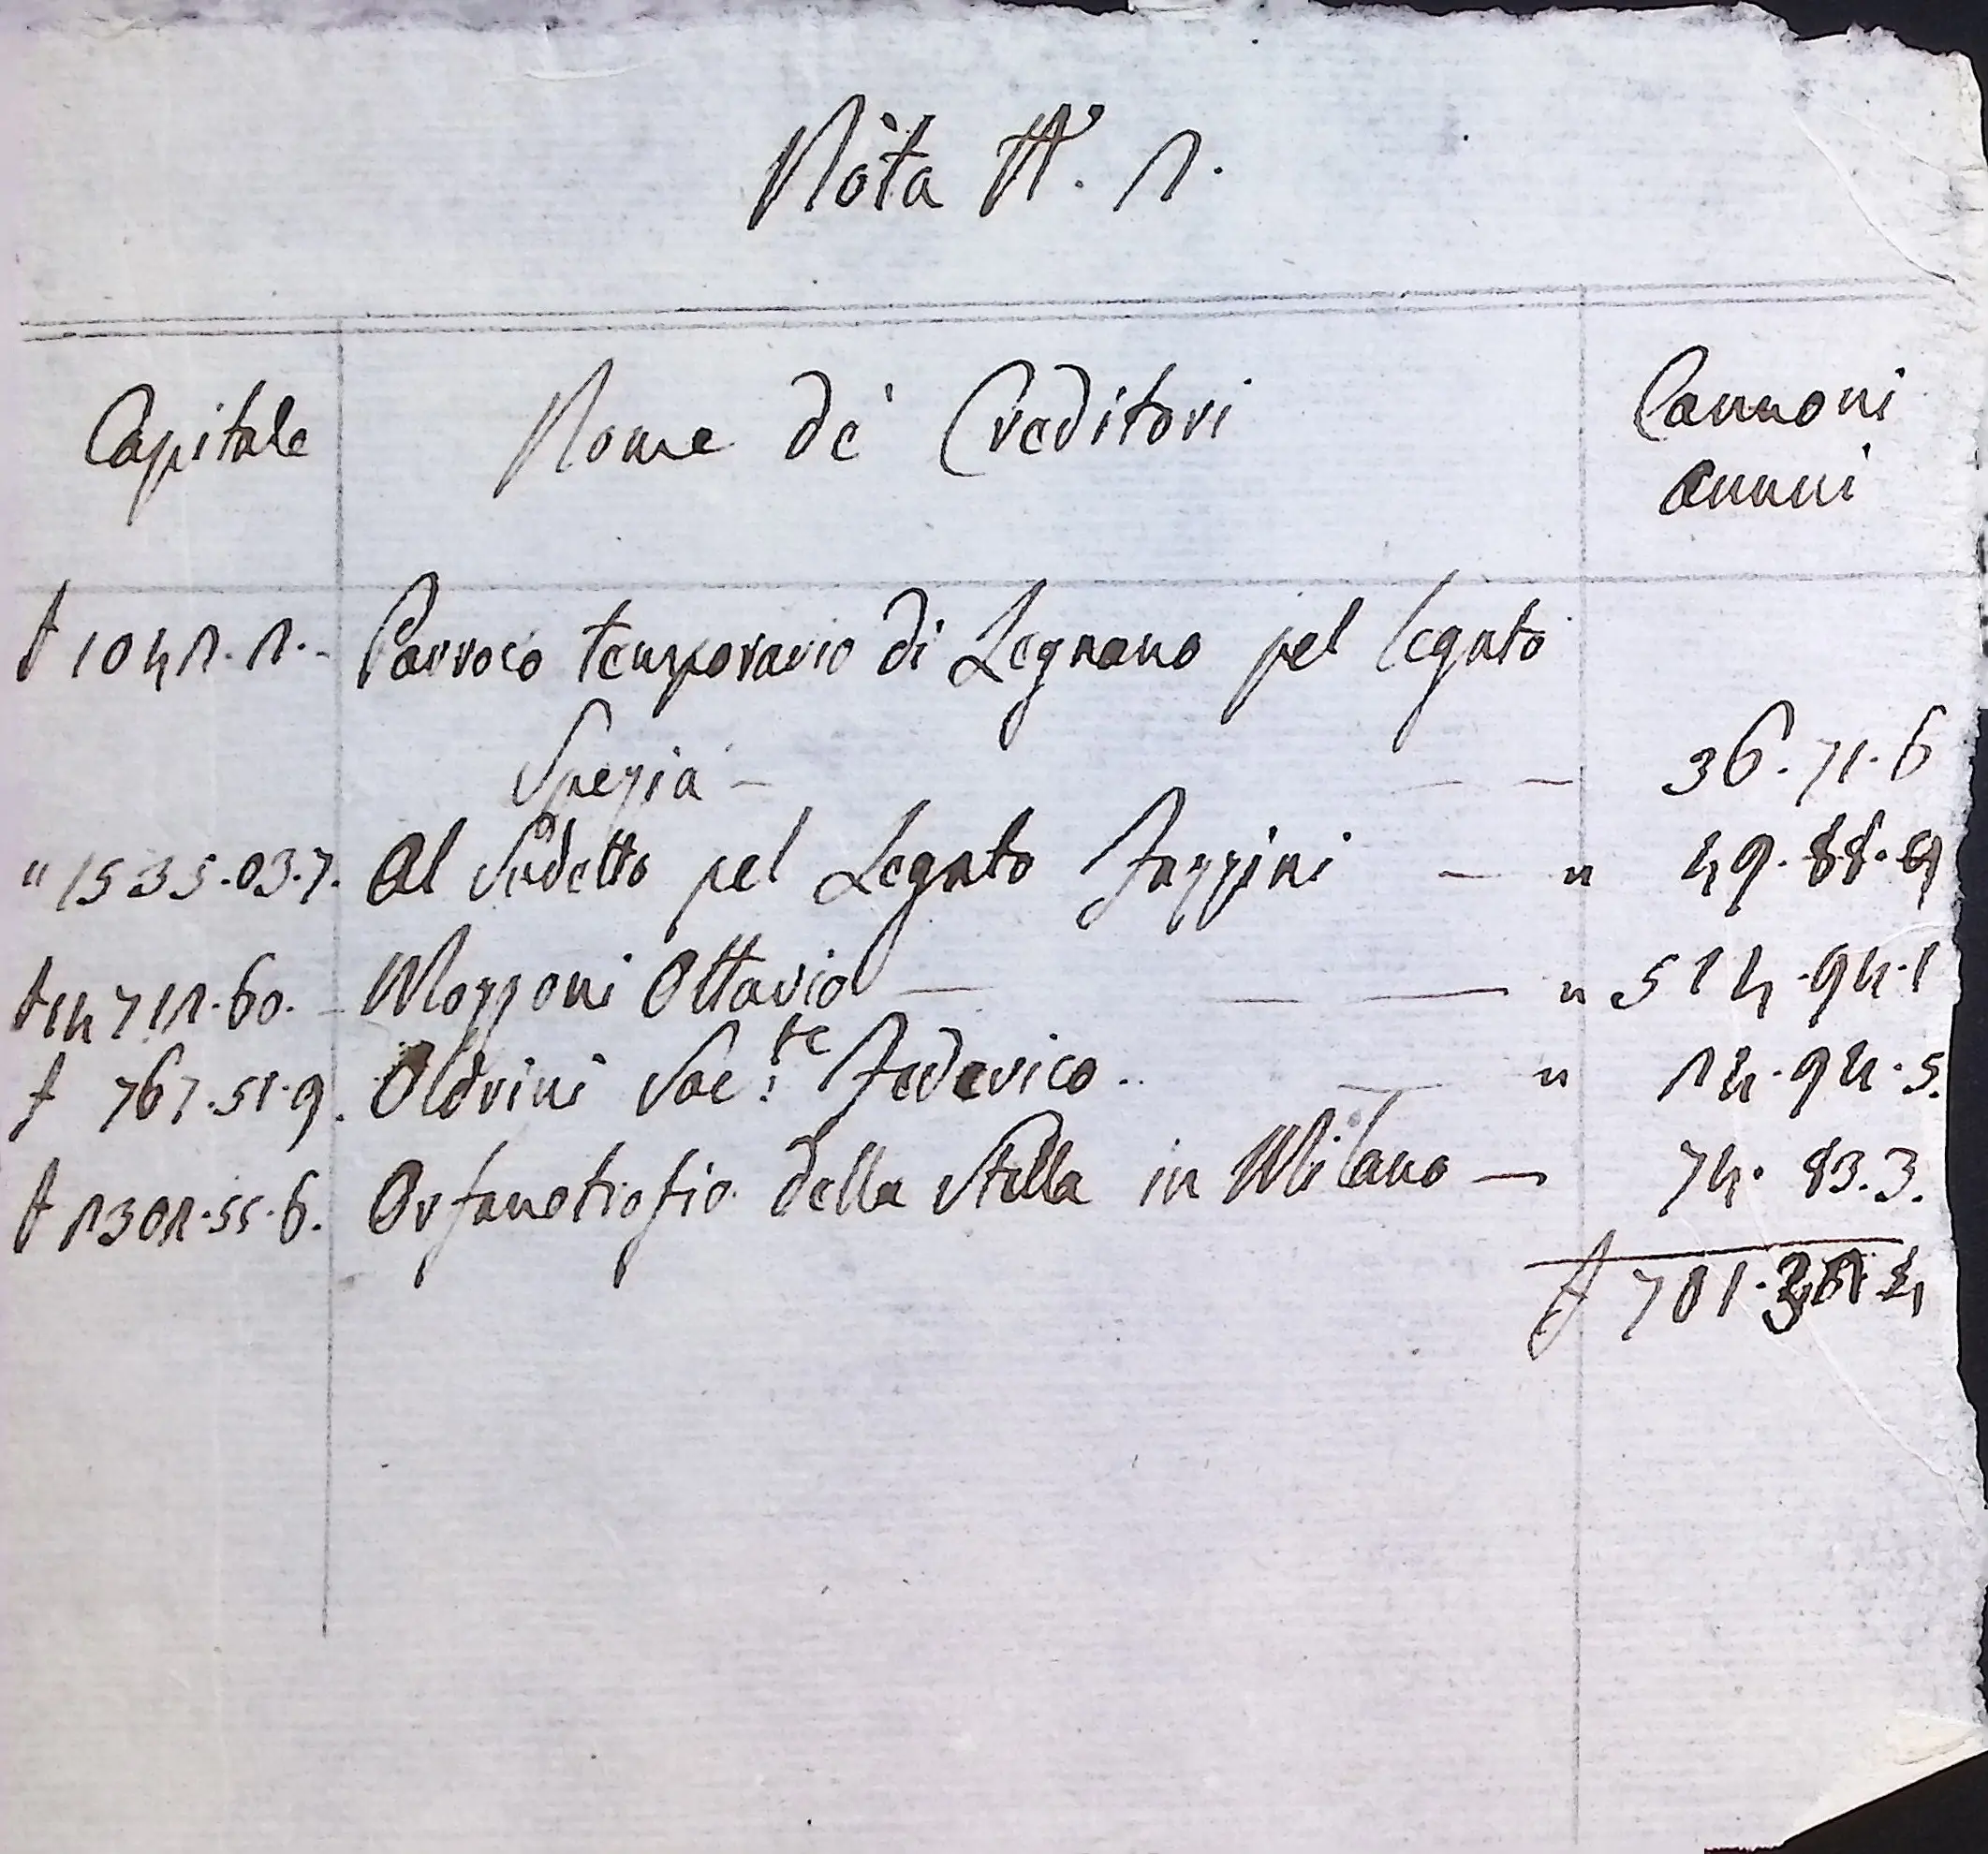 Nota N.° 2.
Capitale Nome de' Creditori Cannoni
annui
£ 1042.2.- Parroco temporario di Legnano pel legato
Spezia - — — 36.71.6
" 1535.03.7. Al Sudetto pel Legato Fazzini — " 49.88.9
£ 14712.60. - Mozzoni Ottavio — — — " 514.94.1
£ 767.51.9. Oldrini Sac.te Federico.. — " 24.94.5.
£ 2302.55.6. Orfanotrofio della Stella in Milano — 74.83.3.
£ 701.32.4